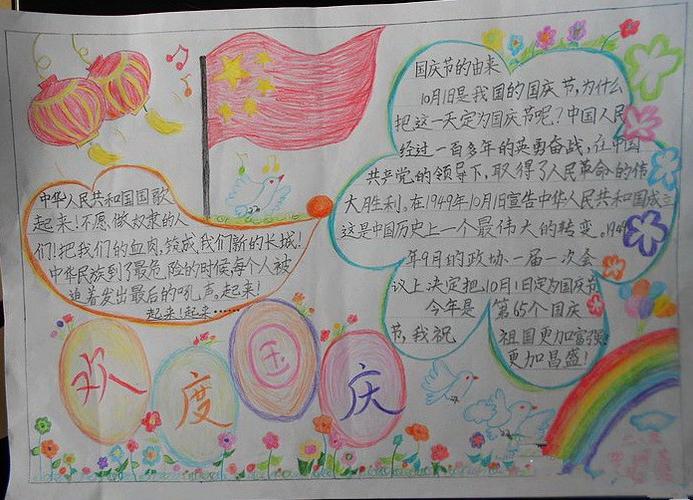 中华人民共和国国歌
起来!不愿做奴隶的人
们!把我们的血肉,筑成我们新的长城!
中华民族到了最危险的时候,每个人被
迫着发出最后的吼声。起来!
起来!起来……
国庆节的由来
10月1日是我国的国庆节,为什么
把这一天定为国庆节呢?中国人民
经过一百多年的英勇奋战,在中国
共产党的领导下,取得了人民革命的伟
大胜利。在1949年10月1日宣告中华人民共和国成立
这是中国历史上一个最伟大的转变。1949
年9月的政协一届一次会
议上决定把10月1日定为国庆节
今年是第65个国庆
节,我祝祖国更加富强!
更加昌盛!
欢度国庆